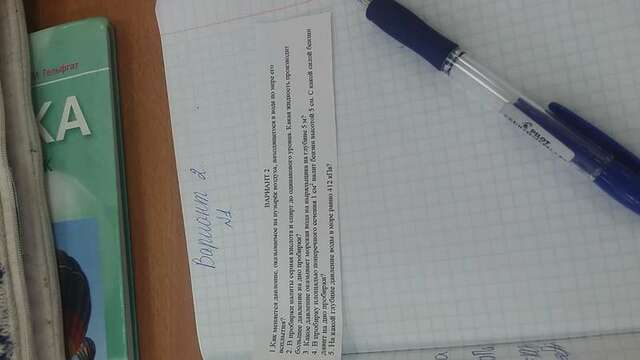 ВАРИАНТ 2
1.Как меняется давление, оказываемое на пузырёк воздуха, находящегося в воде по мере его
всплытия?
2. В пробирки налиты серная кислота и спирт до одинакового уровня. Какая жидкость производит
большее давление на дно пробирки?
3. Какое давление оказывает морская вода на ныряльщика на глубине 5 м?
4. В пробирку площадью поперечного сечения 1 см² налит бензин высотой 5 см. С какой силой бензин
давит на дно пробирки?
5. На какой глубине давление воды в море равно 412 кПа?
Вариант 2.
№1
Гельфгат
КА
PILOT